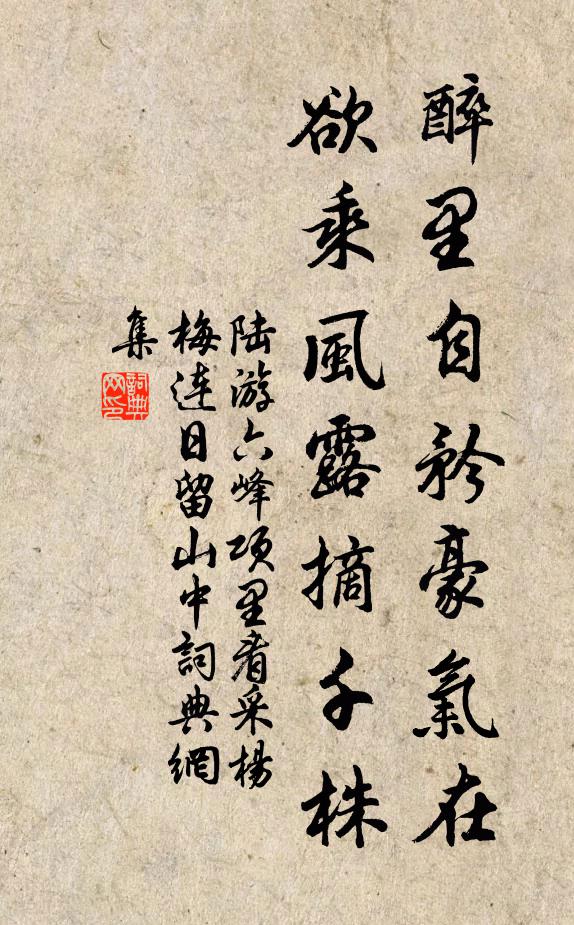 醉里自矜豪氣在
欲乘風露摘千株
陆游六峰项里看采楊
梅連日留山中詞典網
集
詞典
网印